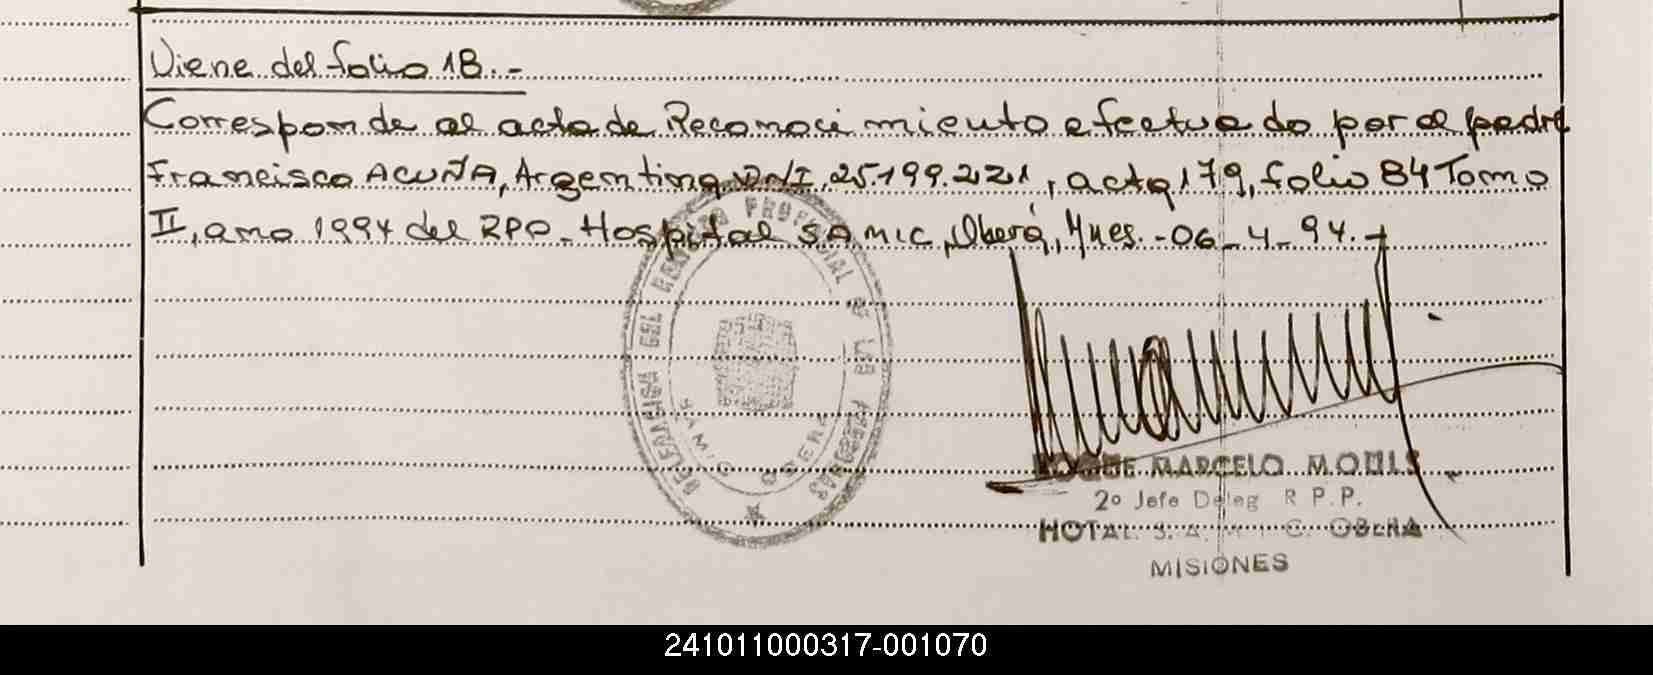 Viene del folio 18.-
Corresponde al acta de Reconocimiento efectuado por el padre
Francisco ACUÑA, Argentino, DNI. 25.199.221, acta 179, folio 84 Tomo
II, ano 1994 del RPO- Hospital SAMIC, Oberá, Mnes.-06-4-94.-
DELEGACION DEL REGISTRO PROVINCIAL DE LAS PERSONAS
SAMIC OBERA
MARCELO
2º Jefe Deleg R P.P.
HOTAL. S. A. M I C. OBERA
MISIONES
241011000317-001070